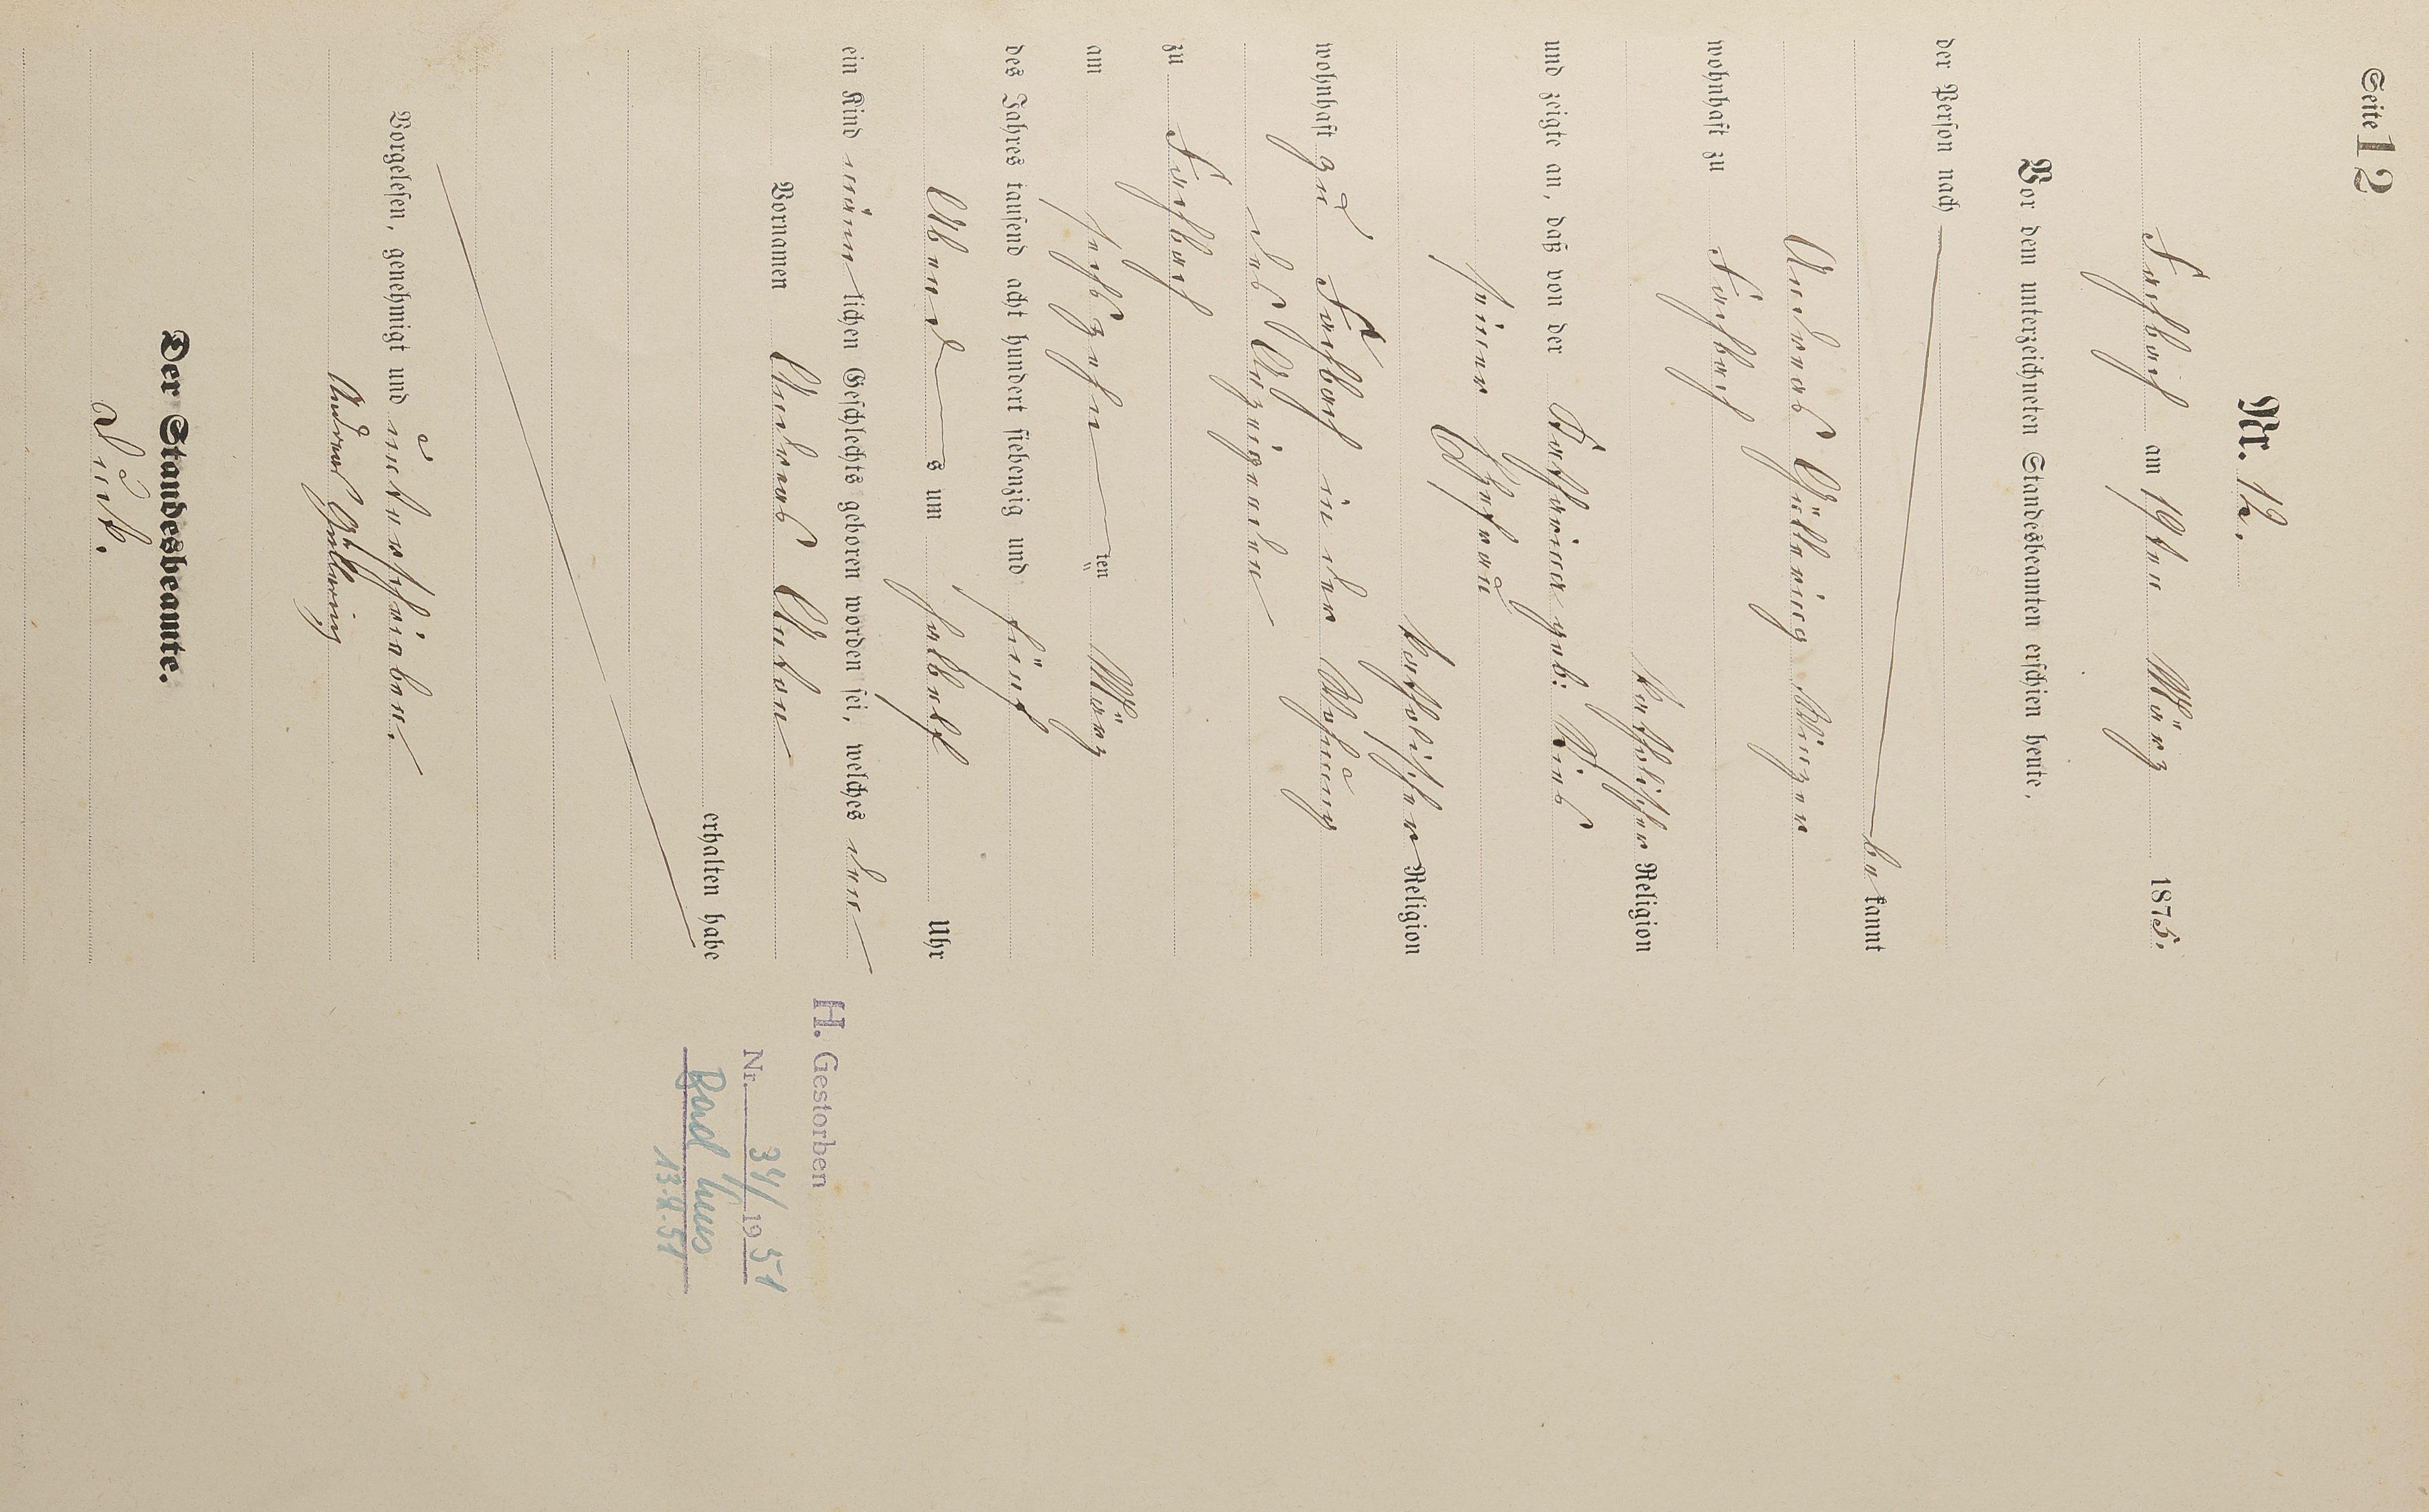 Seite 12
Nr. 12.
Fachbach am 19ten März 1875.
Vor dem unterzeichneten Standesbeamten erschien heute,
der Person nach
bekannt
Andreas Güllering
wohnhaft zu Fachbach
katholischer Religion
und zeigte an, daß von der Katharina geb:
seiner Ehefrau
katholischer Religion
wohnhaft zu Fachbach in der Wohnung
des Anzeigenden
zu Fachbach
am sechszehn ten März
des Jahres tausend acht hundert siebenzig und fünf
Abend s um halb elf Uhr
ein Kind männlichen Geschlechts geboren worden sei, welches den
Vornamen Andreas Anton
erhalten habe
Vorgelesen, genehmigt und unterschrieben.
Andreas Güllering
Der Standesbeamte.
H. Gestorben
Nr. 34/1951
Bad Ems